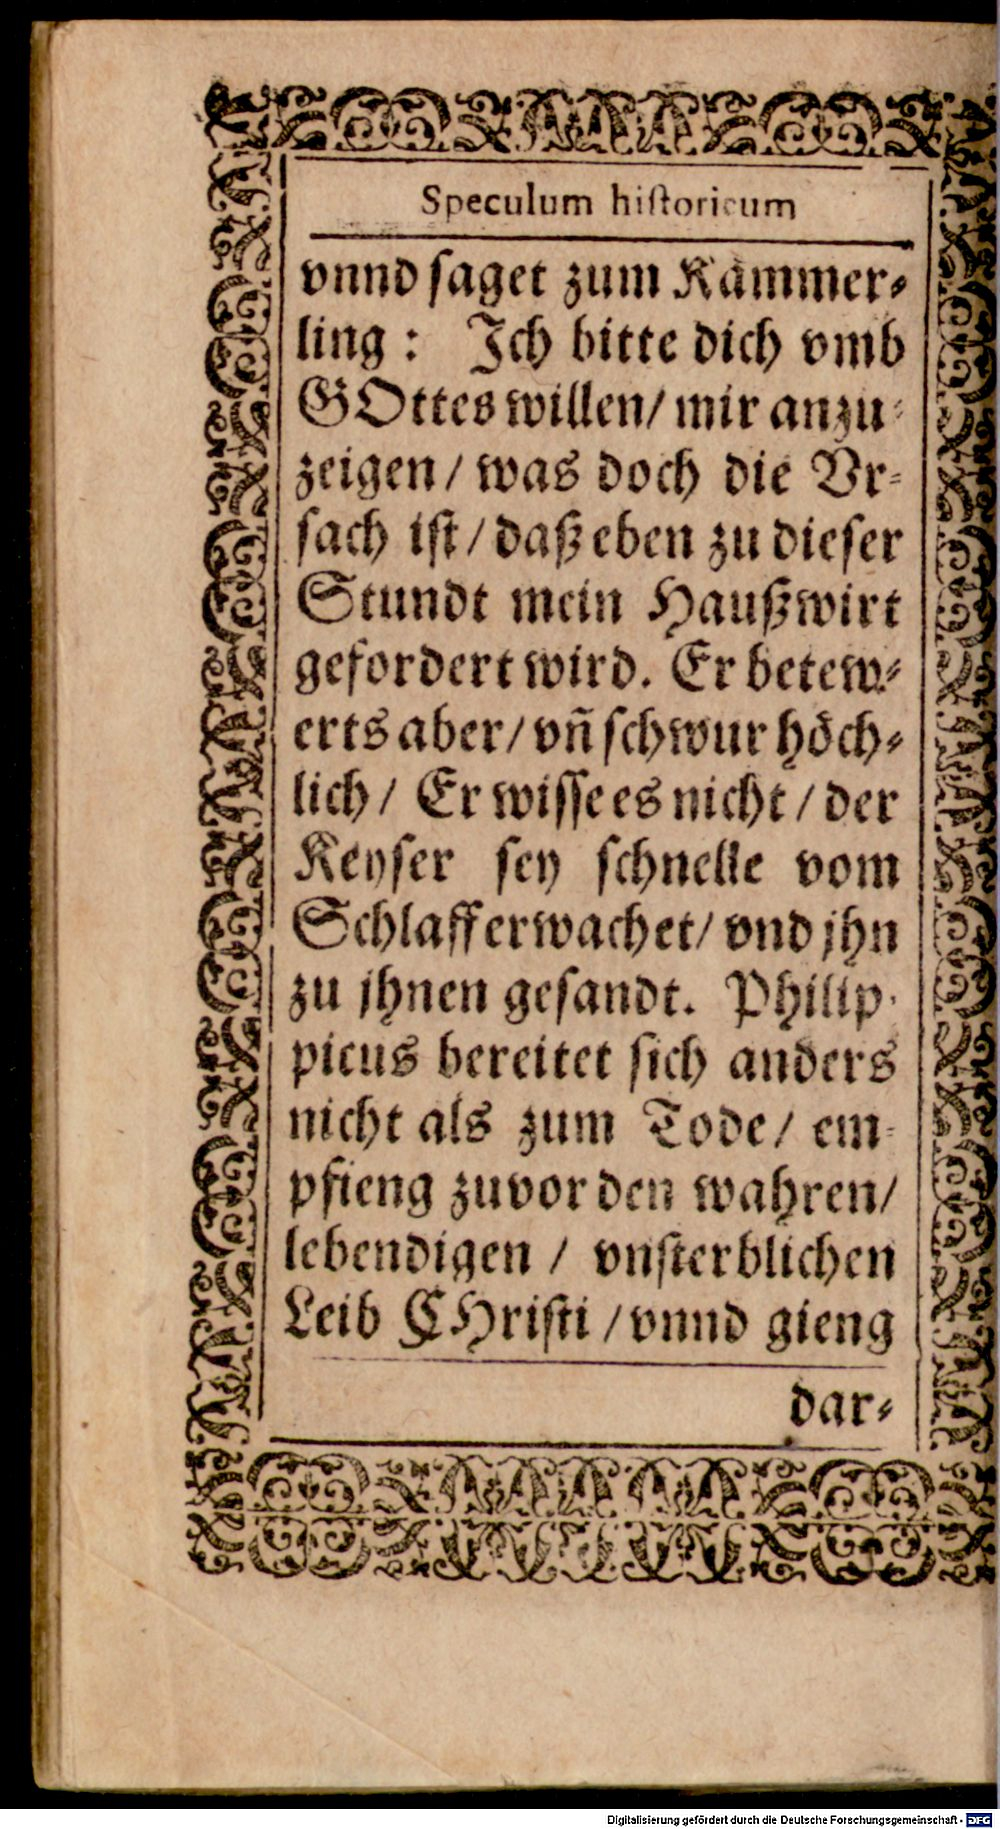 Speculum historicum
vnnd saget zum Kämmer-
ling : Ich bitte dich vmb
GOttes willen/ mir anzu-
zeigen / was doch die Vr-
sach ist / daß eben zu dieser
Stundt mein Haußwirt
gefordert wird. Er betew-
erts aber / vñ schwur höch-
lich / Er wisse es nicht / der
Keyser sey schnelle vom
Schlaff erwachet / vnd jhn
zu jhnen gesandt. Philip-
picus bereitet sich anders
nicht als zum Tode / em-
pfieng zuvor den wahren/
lebendigen / vnsterblichen
Leib CHristi / vnnd gieng
dar-
Digitalisierung gefördert durch die Deutsche Forschungsgemeinschaft - DFG